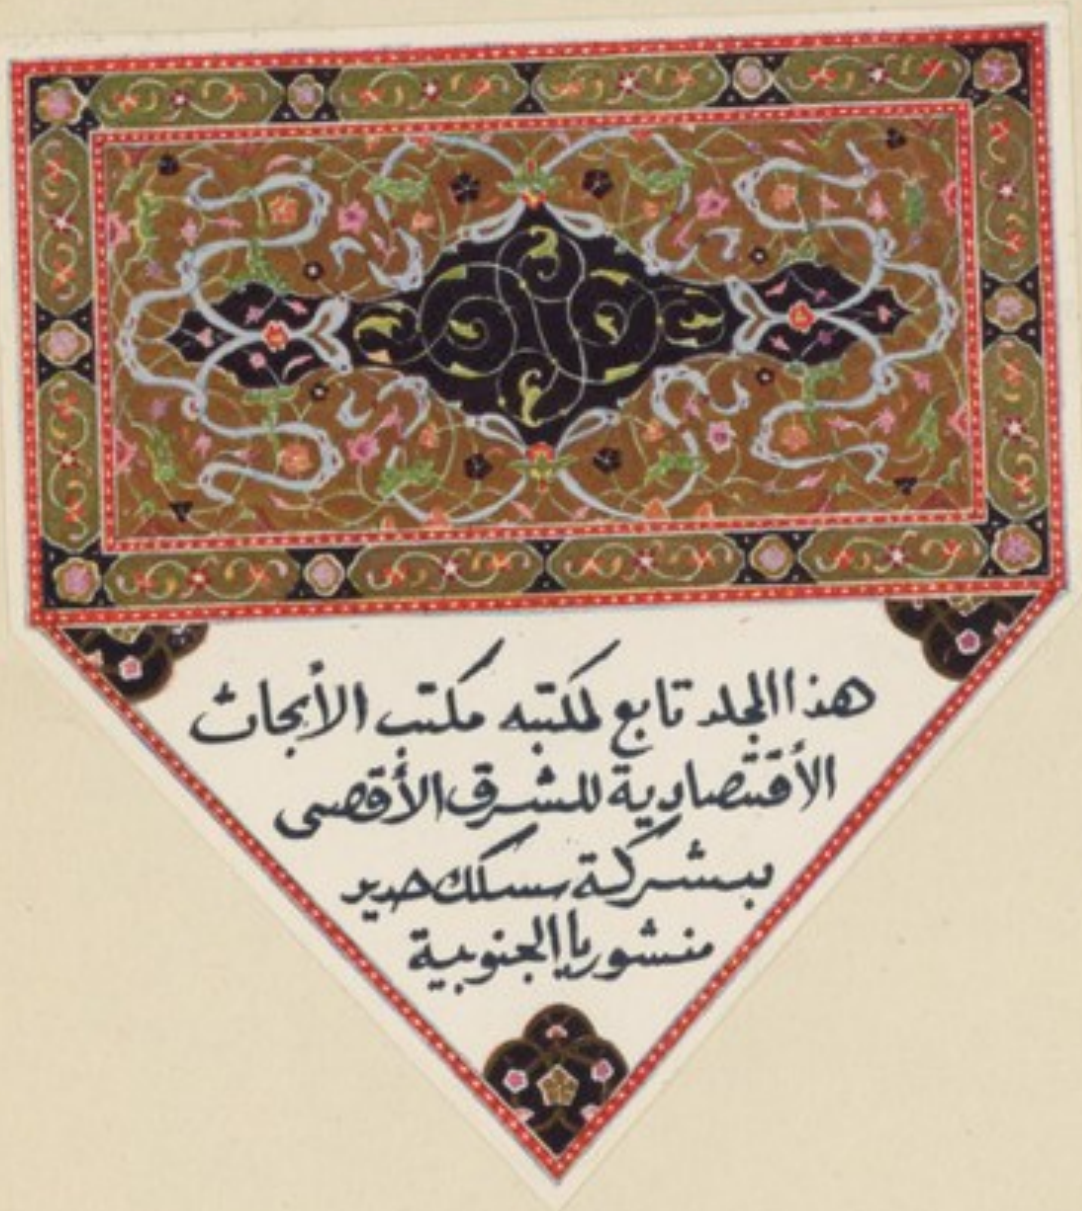 هذا المجلد تابع لمكتبه مكتب الأبحاث
الأقتصادية للشرق الأقصى
بشركة سسكك حدير
منشوريا الجنوبية